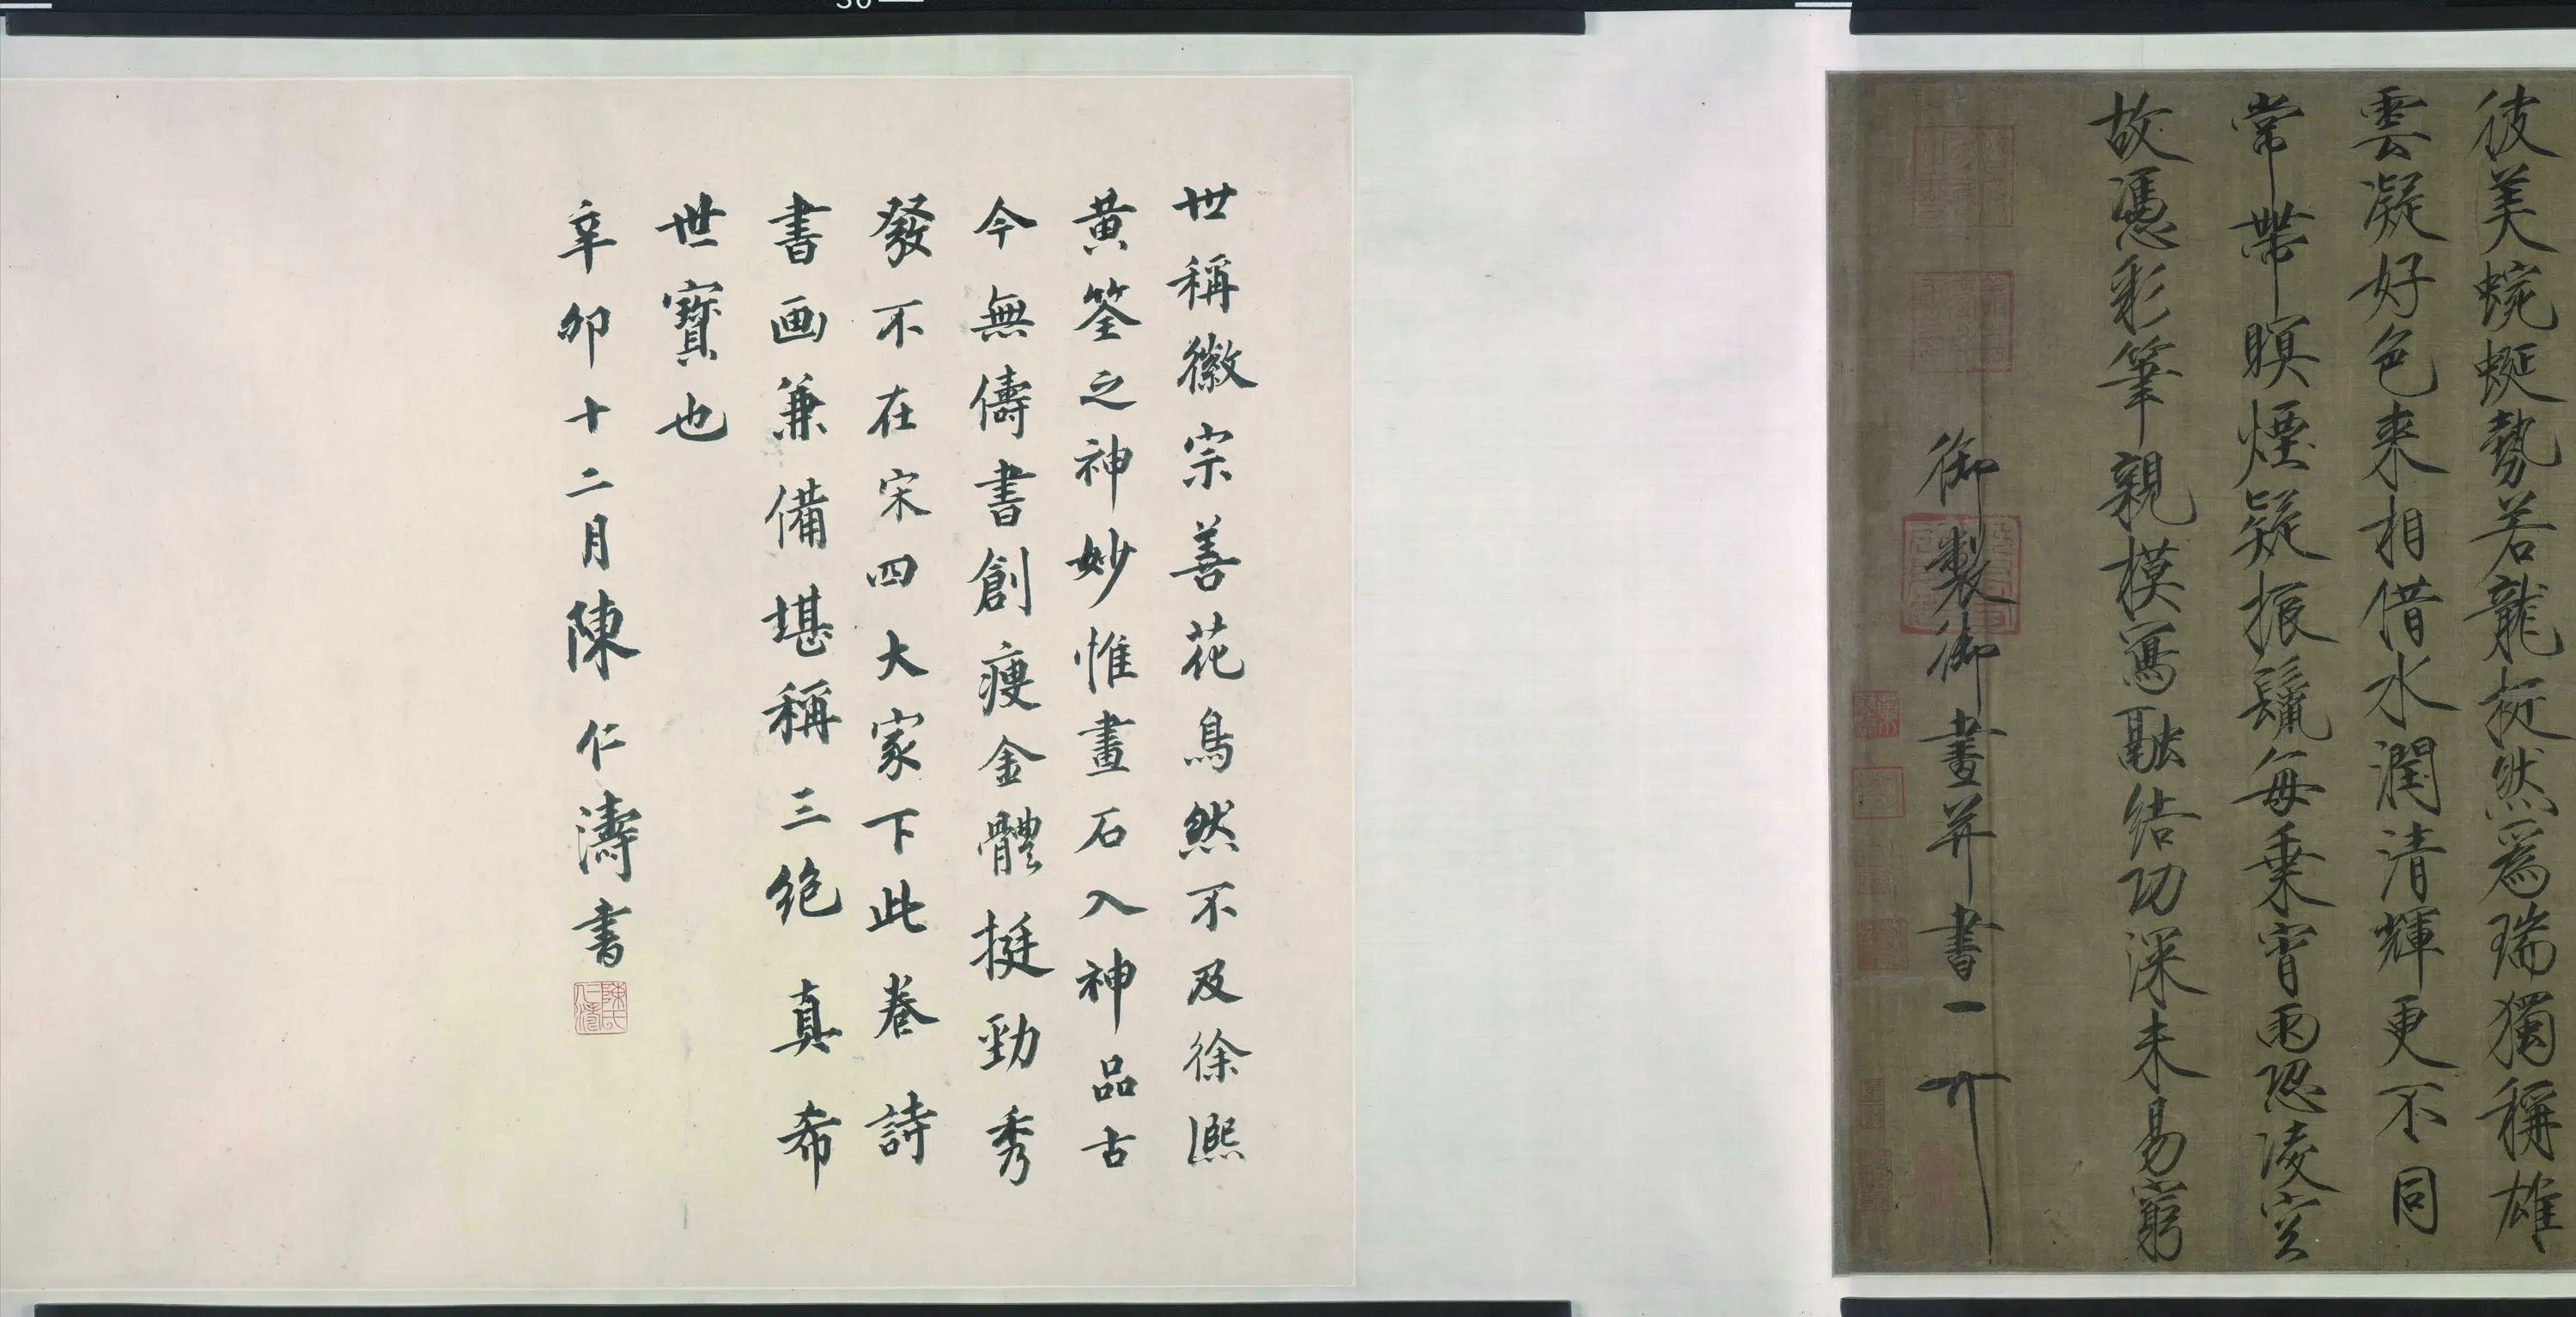 彼美蜿蜒勢若龍挺然爲瑞獨稱雄
雲凝好色来相借水潤清輝更不同
常帶暝煙疑振鬣每乗宵雨恐凌空
故憑彩筆親模寫融結功深未易窮
御製御畫并書
世稱徽宗善花鳥然不及徐熈
黄筌之神妙惟畫石入神品古
今無儔書創瘦金體挺勁秀
發不在宋四大家下此卷詩
書画兼備堪稱三絶真希
世寳也
辛卯十二月陳仁濤書
陳氏仁濤